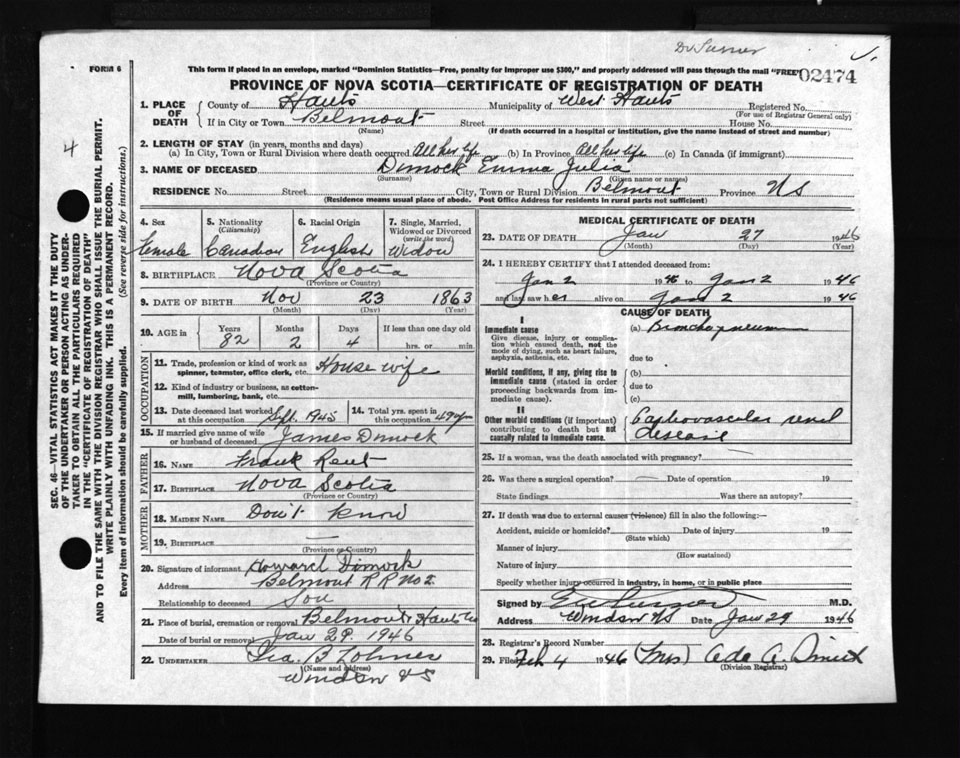 Dr Turner
FORM 6
This form if placed in an envelope, marked "Dominion Statistics—Free, penalty for improper use $300," and properly addressed will pass through the mail "FREE"
02474
PROVINCE OF NOVA SCOTIA—CERTIFICATE OF REGISTRATION OF DEATH
4
SEC. 46—VITAL STATISTICS ACT MAKES IT THE DUTY
OF THE UNDERTAKER OR PERSON ACTING AS UNDER-
TAKER TO OBTAIN ALL THE PARTICULARS REQUIRED
IN THE "CERTIFICATE OF REGISTRATION OF DEATH"
AND TO FILE THE SAME WITH THE DIVISION REGISTRAR WHO SHALL ISSUE THE BURIAL PERMIT.
WRITE PLAINLY WITH UNFADING INK. THIS IS A PERMANENT RECORD.
Every item of information should be carefully supplied. (See reverse side for instructions.)
1. PLACE OF DEATH
County of Hants Municipality of West Hants Registered No.
(For use of Registrar General only)
If in City or Town Belmont Street House No.
(Name) (If death occurred in a hospital or institution, give the name instead of street and number)
2. LENGTH OF STAY (in years, months and days)
(a) In City, Town or Rural Division where death occurred All her life (b) In Province All her life (c) In Canada (if immigrant)
3. NAME OF DECEASED Dimock Emma Julia
(Surname) (Given name or names)
RESIDENCE No. Street City, Town or Rural Division Belmont Province NS
(Residence means usual place of abode. Post Office Address for residents in rural parts not sufficient)
4. Sex 5. Nationality (Citizenship) 6. Racial Origin 7. Single, Married, Widowed or Divorced (write the word)
Female Canadian English Widow
8. BIRTHPLACE Nova Scotia
(Province or Country)
9. DATE OF BIRTH Nov 23 1863
(Month) (Day) (Year)
10. AGE in Years Months Days If less than one day old
82 2 4 hrs. or min.
OCCUPATION
11. Trade, profession or kind of work as spinner, teamster, office clerk, etc. House wife
12. Kind of industry or business, as cotton-mill, lumbering, bank, etc.
13. Date deceased last worked at this occupation Sept. 1945 14. Total yrs. spent in this occupation 49 yr
15. If married give name of wife or husband of deceased James Dimock
FATHER
16. NAME Frank Rent
17. BIRTHPLACE Nova Scotia
(Province or Country)
MOTHER
18. MAIDEN NAME Don't know
19. BIRTHPLACE —
(Province or Country)
20. Signature of informant Howard Dimock
Address Belmont RR No 2
Relationship to deceased Son
21. Place of burial, cremation or removal Belmont Hants Co
Date of burial or removal Jan 29. 1946
22. UNDERTAKER Ira. B Lohnes
(Name and address)
Windsor NS
MEDICAL CERTIFICATE OF DEATH
23. DATE OF DEATH Jan 27 1946
(Month) (Day) (Year)
24. I HEREBY CERTIFY that I attended deceased from:
Jan 2 1946 to Jan 2 1946
and last saw her alive on Jan 2 1946
CAUSE OF DEATH
I
Immediate cause
Give disease, injury or complication which caused death, not the mode of dying, such as heart failure, asphyxia, asthenia, etc.
(a) Bronchopneumonia
due to
Morbid conditions, if any, giving rise to immediate cause (stated in order proceeding backwards from immediate cause).
(b)
due to
(c)
II
Other morbid conditions (if important) contributing to death but not causally related to immediate cause.
Cardiovascular renal
disease
25. If a woman, was the death associated with pregnancy?
26. Was there a surgical operation? — Date of operation 19
State findings Was there an autopsy?
27. If death was due to external causes (violence) fill in also the following:—
Accident, suicide or homicide? Date of injury 19
(State which)
Manner of injury
(How sustained)
Nature of injury
Specify whether injury occurred in industry, in home, or in public place
Signed by M.D.
Address Windsor NS Date Jan 29 1946
28. Registrar's Record Number
29. Filed Feb 4 1946 (Mrs) Ada A. Dimock
(Division Registrar)